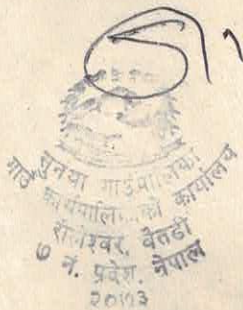 सुनया गाउँपालिका
गाउँ कार्यपालिकाको कार्यालय
रौलेश्वर, वैतडी
७ नं. प्रदेश, नेपाल
२०७३